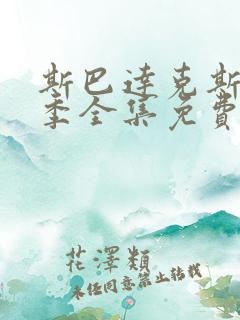 斯巴達克斯
季全集免費
花澤類
未经同意禁止转载